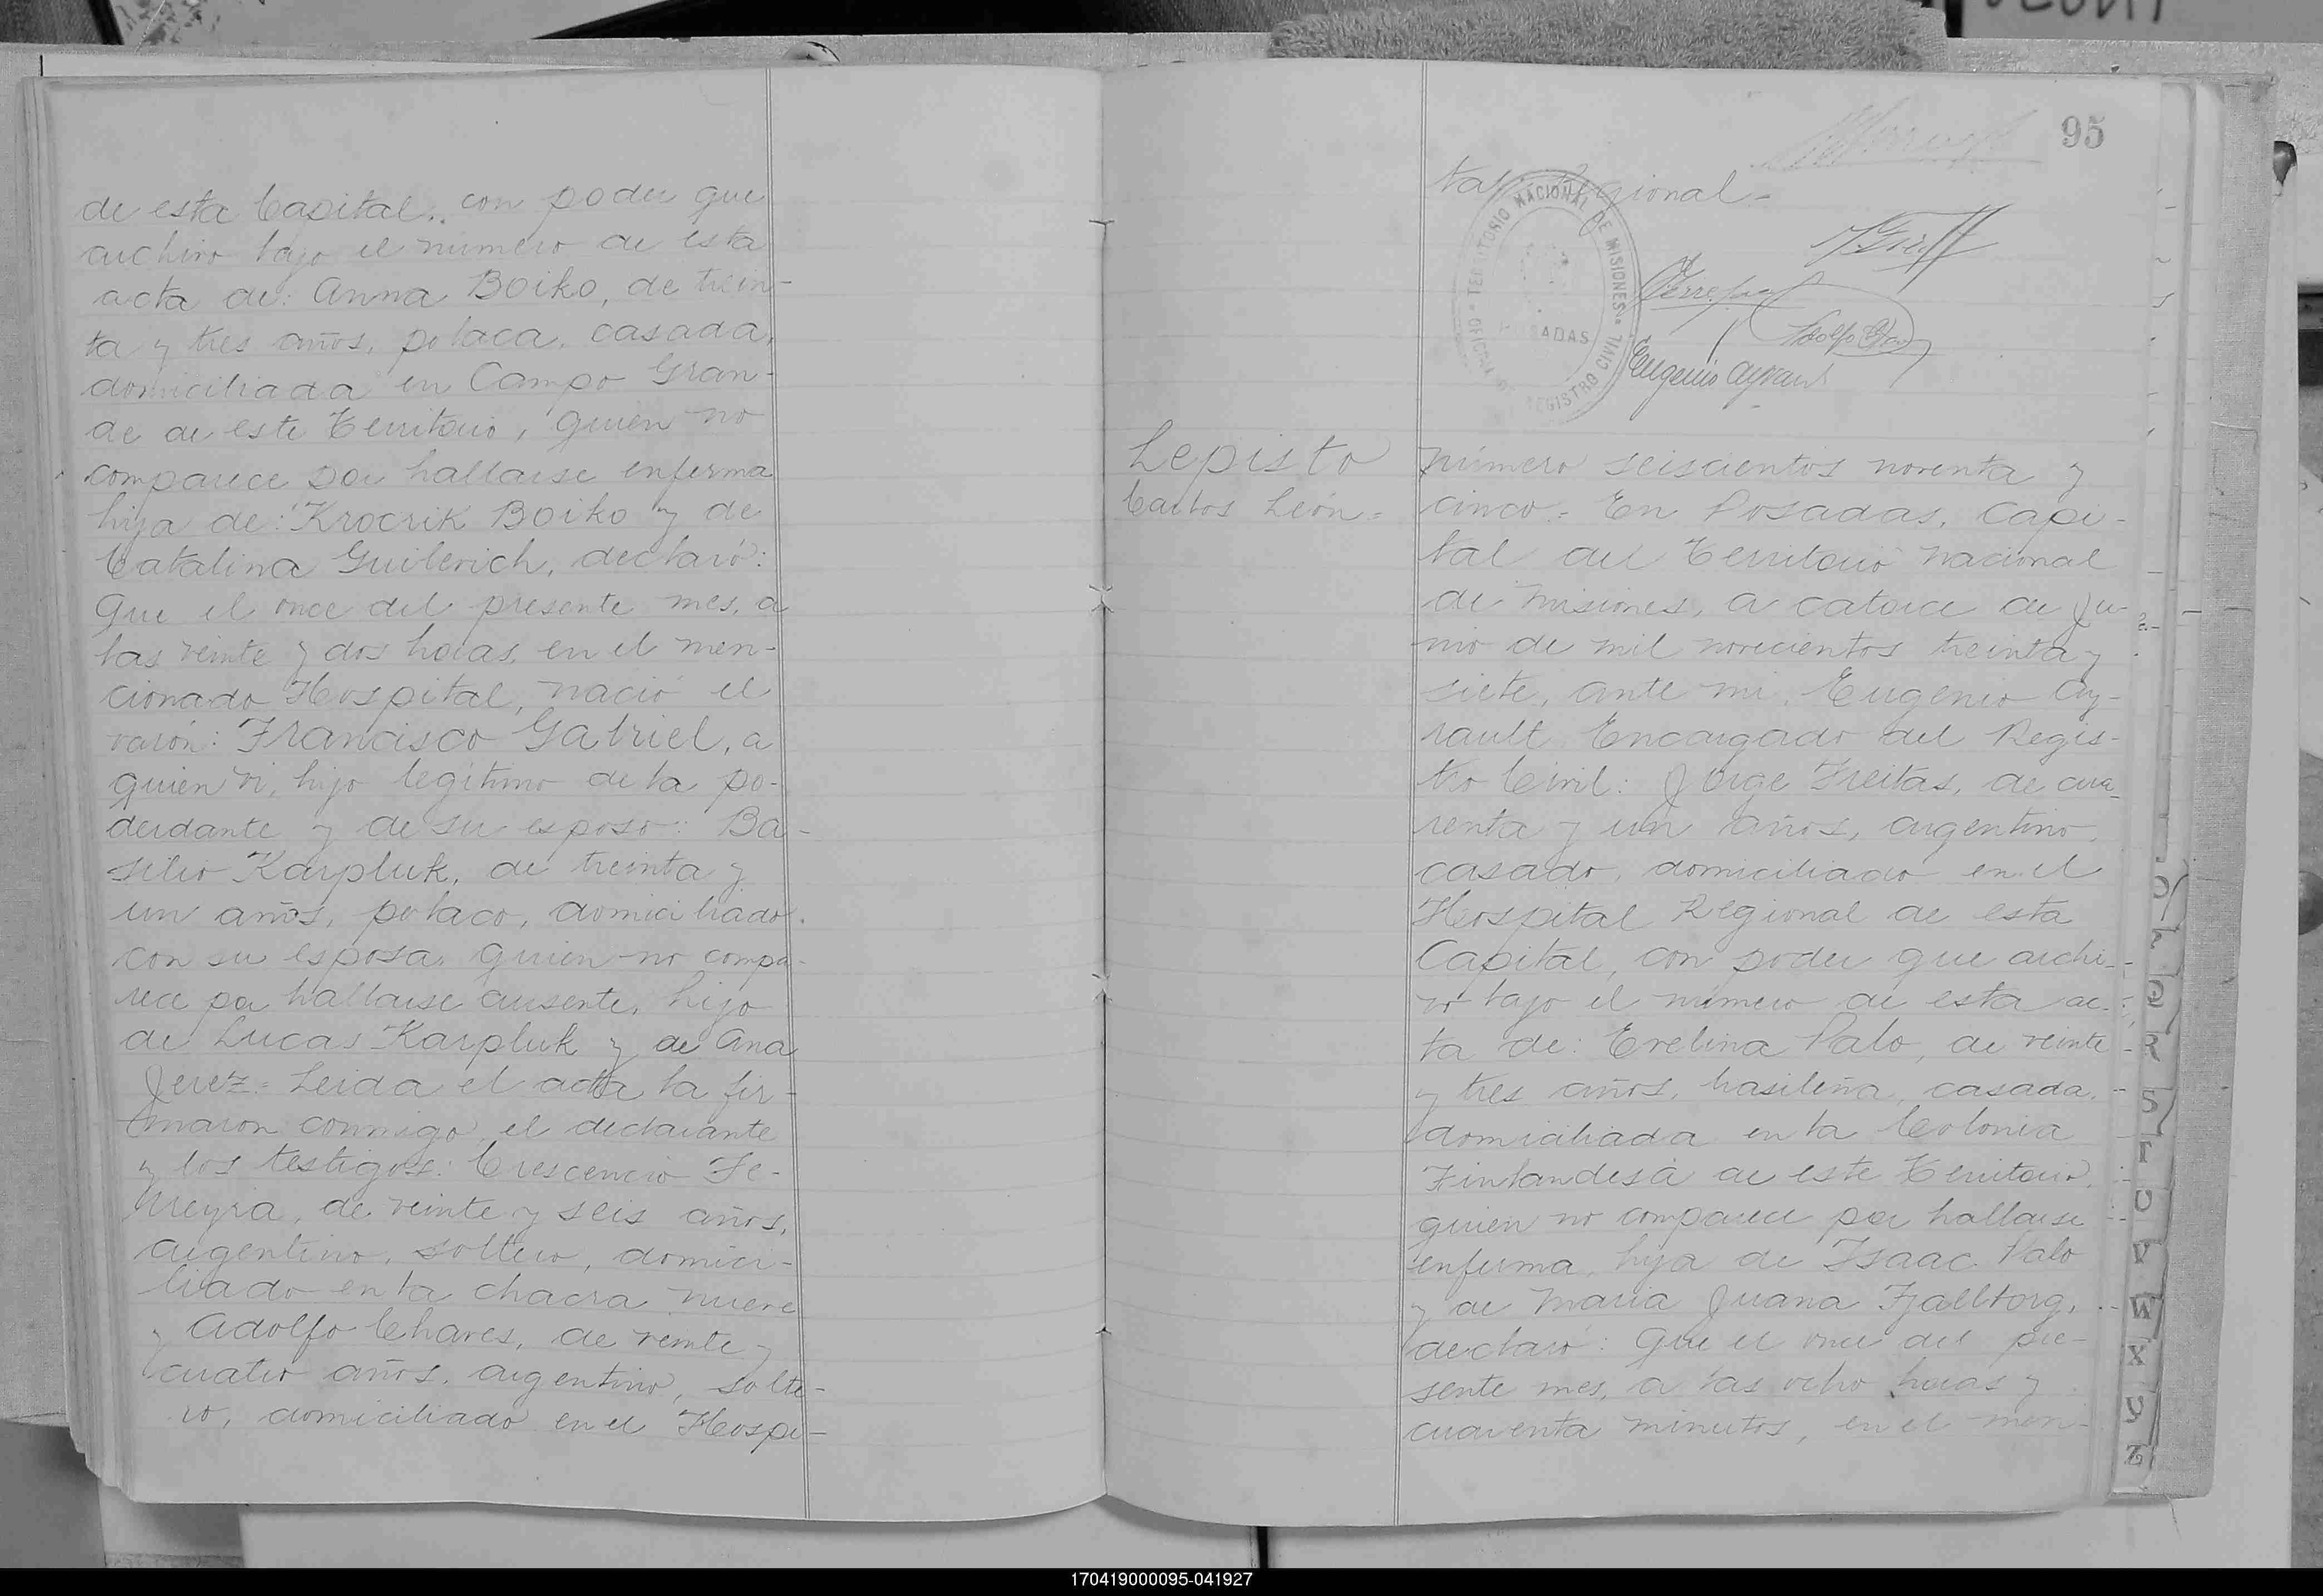 de esta Capital, con poder que
archivo bajo el número de esta
acta de: Anna Boiko, de trein-
ta y tres años, polaca, casada,
domiciliada en Campo Gran-
de de este Territorio, quien no
comparece por hallarse enferma
hija de: Krocrik Boiko y de
Catalina Guilevich, declaró:
Que el once del presente mes, a
las veinte y dos horas, en el men-
cionado Hospital, nació el
varón: Francisco Gabriel, a
quien vi, hijo legítimo de la po-
derdante y de su esposo: Ba-
silio Karpluk, de treinta y
un años, polaco, domiciliado
con su esposa, quien no compa-
rece por hallarse ausente, hijo
de Lucas Karpluk y de Ana
Jerez.= Leida el acta la fir-
maron conmigo, el declarante
y los testigos: Crescencio Fe-
rreyra, de veinte y seis años,
argentino, soltero, domici-
liado en la chacra nueve
y Adolfo Chaves, de veinte y
cuatro años, argentino, solte-
ro, domiciliado en el Hospi-
95
tal Regional.-
TERRITORIO NACIONAL DE MISIONES
OFICINA DE REGISTRO CIVIL
POSADAS
Eugenio Ayrault
Lepisto
Carlos León=
número seiscientos noventa y
cinco.= En Posadas, Capi-
tal del Territorio Nacional
de Misiones, a catorce de Ju-
nio de mil novecientos treinta y
siete, ante mi, Eugenio Ay-
rault Encargado del Regis-
tro Civil: Jorge Freitas, de cua-
renta y un años, argentino,
casado, domiciliado en el
Hospital Regional de esta
Capital, con poder que archi-
vo bajo el número de esta ac-
ta de: Evelina Palo, de veinte
y tres años, brasileña, casada,
domiciliada en la Colonia
Finlandesa de este Territorio,
quien no comparece por hallarse
enferma, hija de Isaac Palo
y de Maria Juana Fjallborg,
declaró: Que el once del pre-
sente mes, a las ocho horas y
cuarenta minutos, en el men-
V
W
X
Y
Z
170419000095-041927